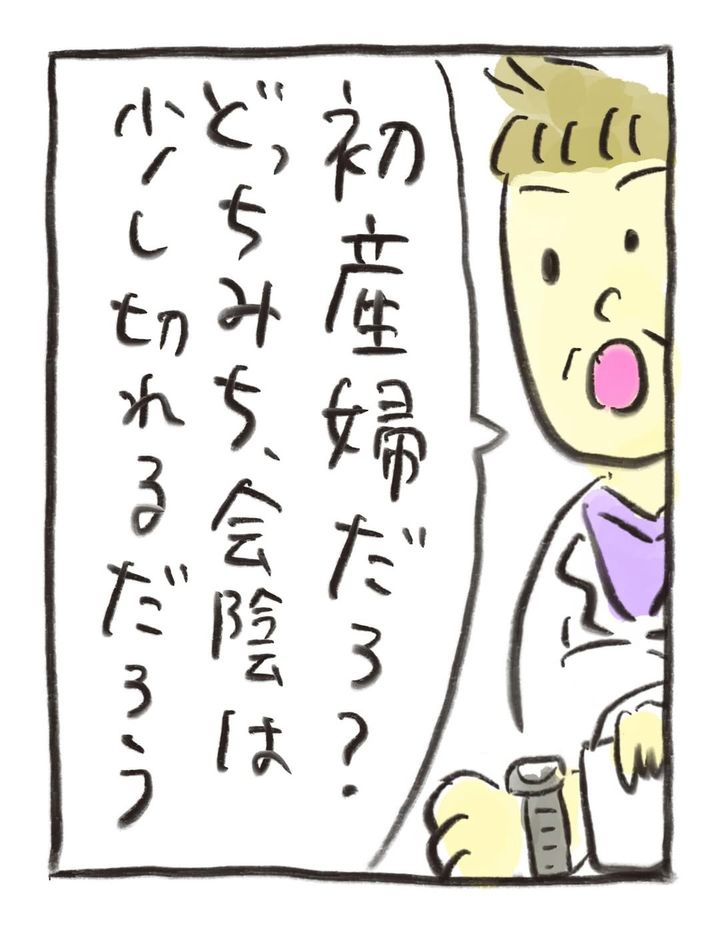 初産婦だろ?
どっちみち、会陰は
少し切れるだろう